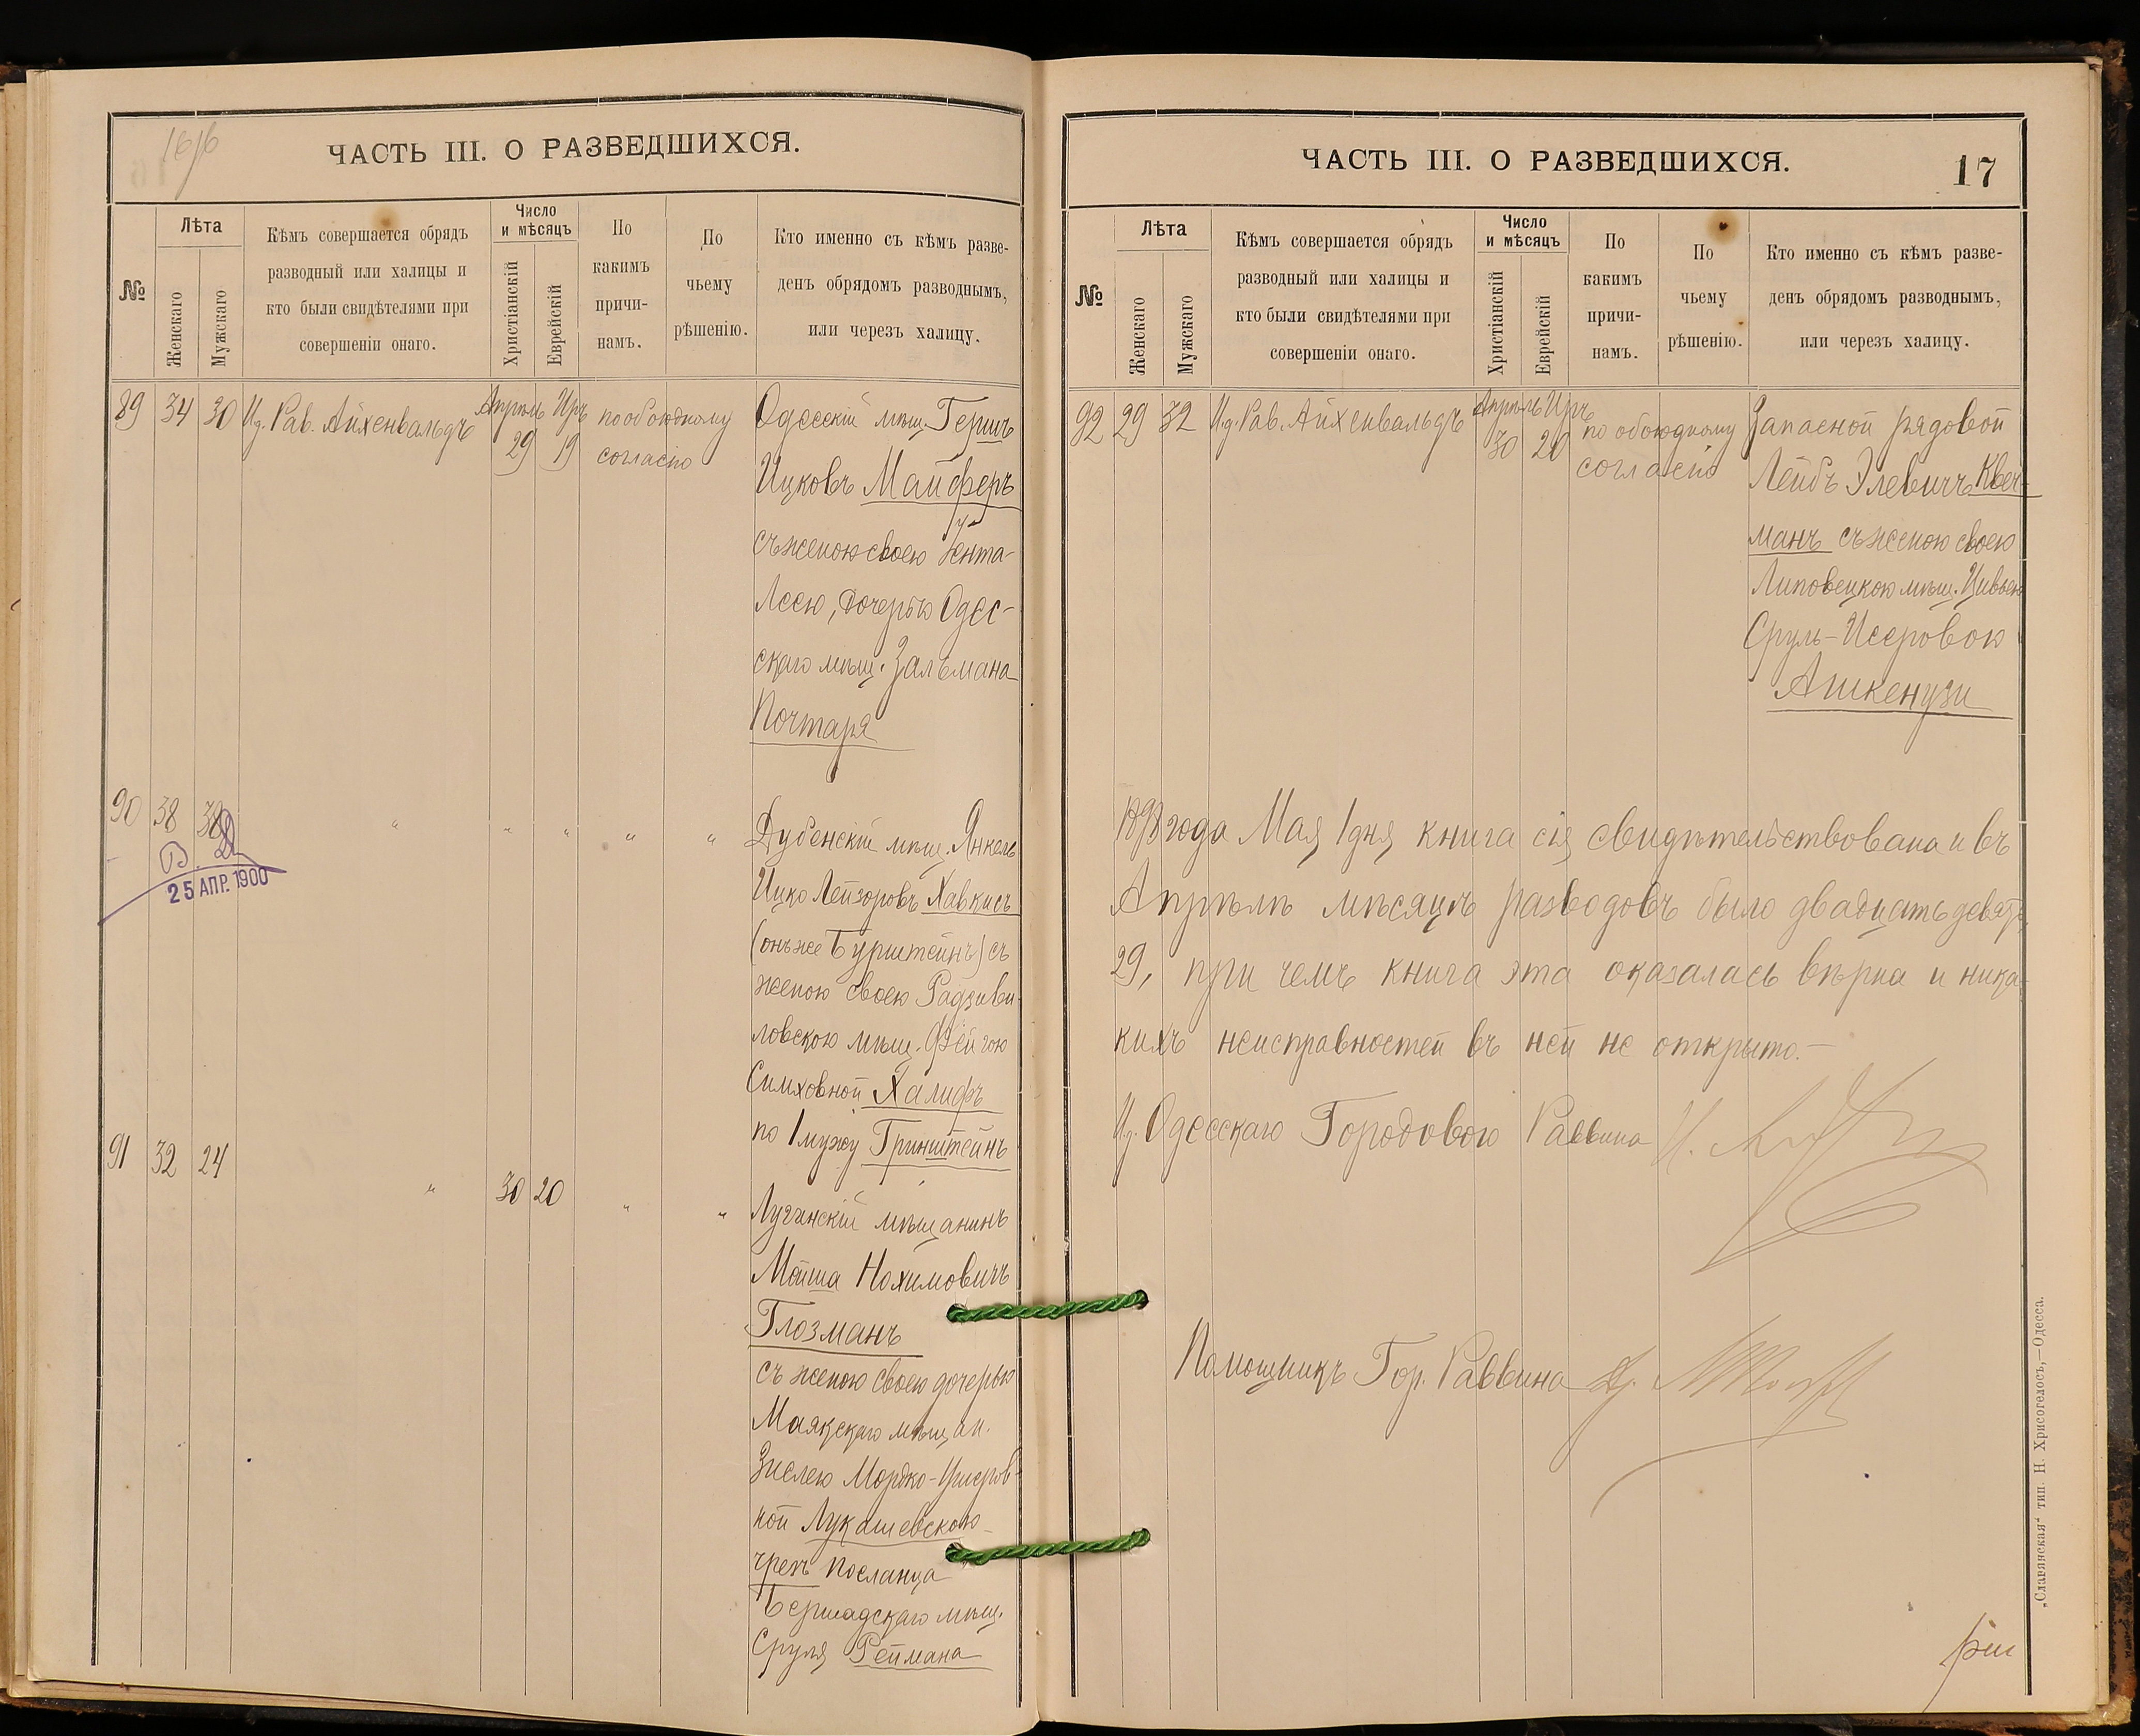 16/16
ЧАСТЬ III. О РАЗВЕДШИХСЯ.
№
Лѣта
Женскаго
Мужскаго
Кѣмъ совершается обрядъ
разводный или халицы и
кто были свидѣтелями при
совершеніи онаго.
Число
и мѣсяцъ
Христіанскій
Еврейскій
По
какимъ
причи-
намъ.
По
чьему
рѣшенію.
Кто именно съ кѣмъ разве-
денъ обрядомъ разводнымъ,
или черезъ халицу.
89 34 30 И.д. Рав. Айхенвальдъ Апрѣль Иръ по обоюдному Одесскій мѣщ. Гершъ
29 19 согласію
Ицковъ Майферъ
съ женою своею Ента-
Лсею, дочерью Одес-
скаго мѣщ. Зальмана
Почтаря
90 38 38 " " " " " Дубенскій мѣщ. Янкель
25 АПР. 1900
Ицко Лейзоровъ Хавкисъ
(онъ же Бурштейнъ) съ
женою своею Радзиви-
ловскою мѣщ. Фейгою
Симховной Халифъ
по 1 мужу Гринштейнъ
91 32 24 " 30 20 " " Луганскій мѣщанинъ
Мойша Нохимовичъ
Глозманъ
съ женою своею дочерью
Маякскаго мѣщан.
Зислею Мордко-
ной Лукашевскою
чрезъ посланца
Бершадскаго мѣщ.
Сруля Реймана
ЧАСТЬ III. О РАЗВЕДШИХСЯ.
17
№
Лѣта
Женскаго
Мужскаго
Кѣмъ совершается обрядъ
разводный или халицы и
кто были свидѣтелями при
совершеніи онаго.
Число
и мѣсяцъ
Христіанскій
Еврейскій
По
какимъ
причи-
намъ.
По
чьему
рѣшенію.
Кто именно съ кѣмъ разве-
денъ обрядомъ разводнымъ,
или черезъ халицу.
92 29 32 И.д. Рав. Айхенвальдъ Апрѣль Иръ по обоюдному Запасной рядовой
30 20 согласію
Лейбъ Элевичъ Квеч-
манъ съ женою своею
Липовецкою мѣщ. Цивьею
Сруль-Исеровою
Ашкенузи
1898 года Мая 1 дня книга сія свидѣтельствована и въ
Апрѣлѣ мѣсяцѣ разводовъ было двадцать девять,
29, при чемъ книга эта оказалась вѣрна и ника-
кихъ неисправностей въ ней не открыто.—
И.д. Одесскаго Городового Раввина
Помощникъ Гор. Раввина
„Славянская“ тип. Н. Хрисогелосъ,—Одесса.